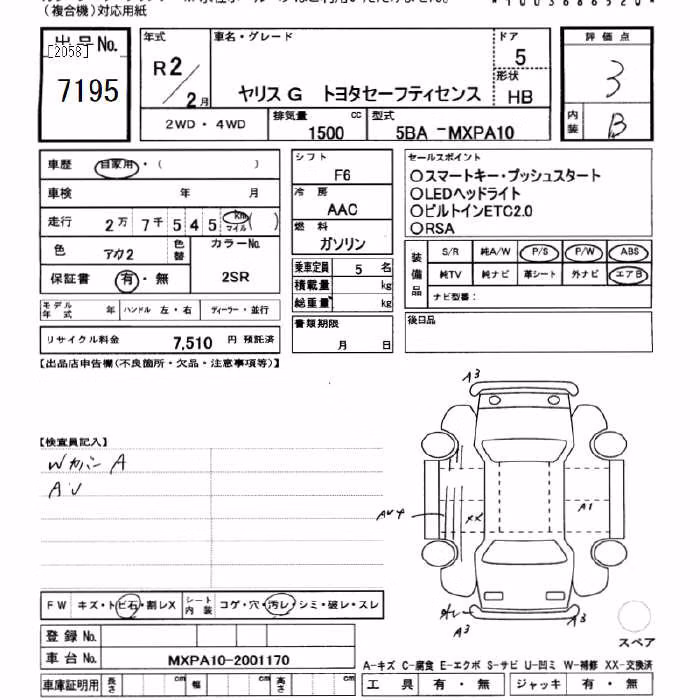 (複合機)対応用紙
*1003686520*
出品No.
[2058]
7195
年式
R2
2月
車名・グレード
ヤリス G トヨタセーフティセンス
ドア
5
形状
HB
評価点
3
内装
B
2WD・4WD
排気量
cc
1500
型式
5BA-MXPA10
車歴 自家用・( )
車検 年 月
走行 2万 7千 5 4 5 km マイル ( )
色 アカ2 色替
カラーNo.
2SR
保証書 有・無
モデル年式 年 ハンドル 左・右 ディーラー・並行
リサイクル料金 7,510 円 預託済
シフト
F6
冷房
AAC
燃料
ガソリン
乗車定員 5 名
積載量 kg
総重量 kg
書類期限
月 日
セールスポイント
○スマートキー・プッシュスタート
○LEDヘッドライト
○ビルトインETC2.0
○RSA
装備品
S/R 純A/W P/S P/W ABS
純TV 純ナビ 革シート 外ナビ エアB
ナビ型番:
後日品
【出品店申告欄(不良箇所・欠品・注意事項等)】
【検査員記入】
Wカバー A
AU
A3
AUY
XX
A1
A3
A3
スペア
FW キズ・トビ石・割レX
シート内装 コゲ・穴・汚レ・シミ・破レ・スレ
登録 No.
車台 No. MXPA10-2001170
車庫証明用 長さ cm 幅 cm 高さ cm
A-キズ C-腐食 E-エクボ S-サビ U-凹ミ W-補修 XX-交換済
工具 有・無 ジャッキ 有・無